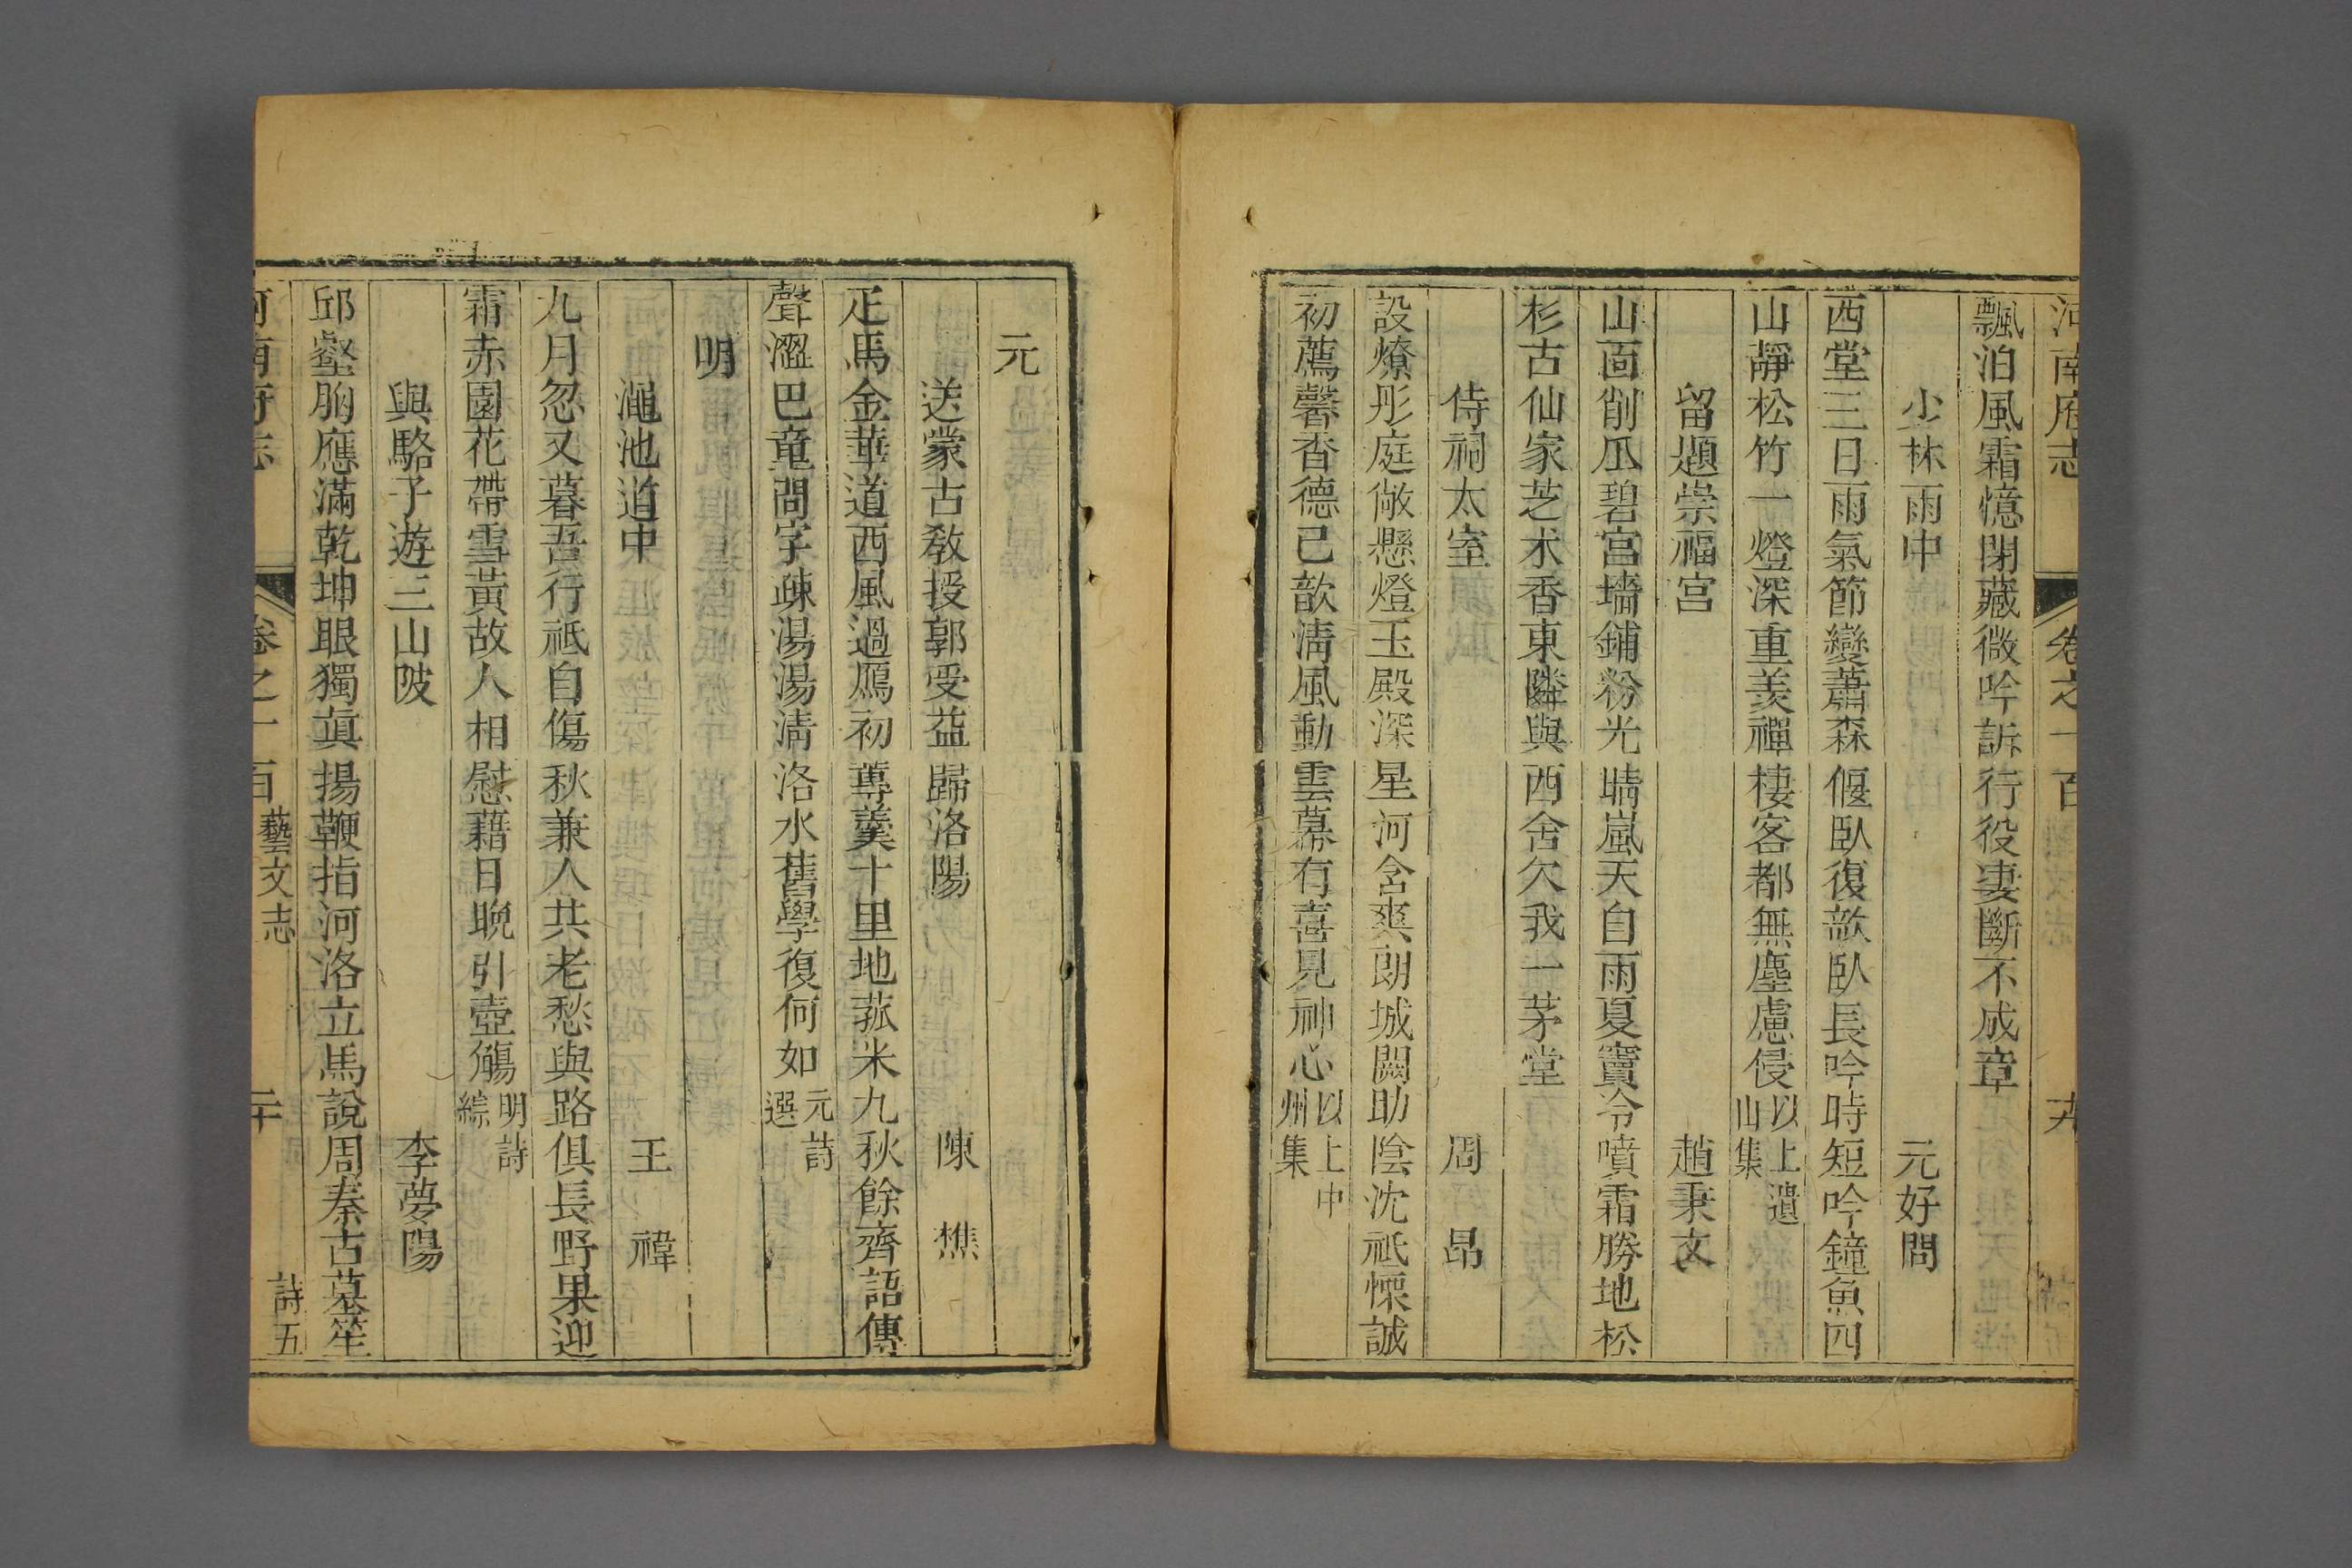 河南府志 卷之一百 十九
飄泊風霜憶閉藏微吟訴行役凄斷不成章
少林雨中 元好問
西堂三日雨氣節變蕭森偃臥復欹臥長吟時短吟鐘魚四
山靜松竹一燈深重羨禪棲客都無塵慮侵以上遺山集
留題崇福宮 趙秉文
山面削瓜碧宮墻鋪粉光晴嵐天自雨夏竇冷噴霜勝地松
杉古仙家芝朮香東隣與西舍欠我一茅堂
侍祠太室 周昂
設燎彤庭敞懸燈玉殿深星河含爽朗城闕助陰沈祇慄誠
初薦馨香德已歆淸風動雲幕有喜見神心以上中州集
元
送蒙古敎授郭受益歸洛陽 陳樵
疋馬金華道西風過鴈初蓴羹十里地菰米九秋餘齊語傳
聲澀巴童問字疎湯湯淸洛水舊學復何如元詩選
明
澠池道中 王禕
九月忽又暮吾行祗自傷秋兼人共老愁與路俱長野果迎
霜赤園花帶雪黃故人相慰藉日晚引壺觴明詩綜
與駱子遊三山陂 李夢陽
邱壑胸應滿乾坤眼獨眞揚鞭指河洛立馬說周秦古墓笙
河南府志 卷之一百 藝文志 二十 詩五